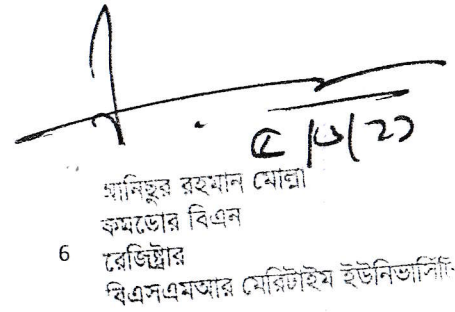 আনিছুর রহমান মোল্লা
কমডোর বিএন
6 রেজিষ্ট্রার
বিএসএমআর মেরিটাইম ইউনিভার্সিটি